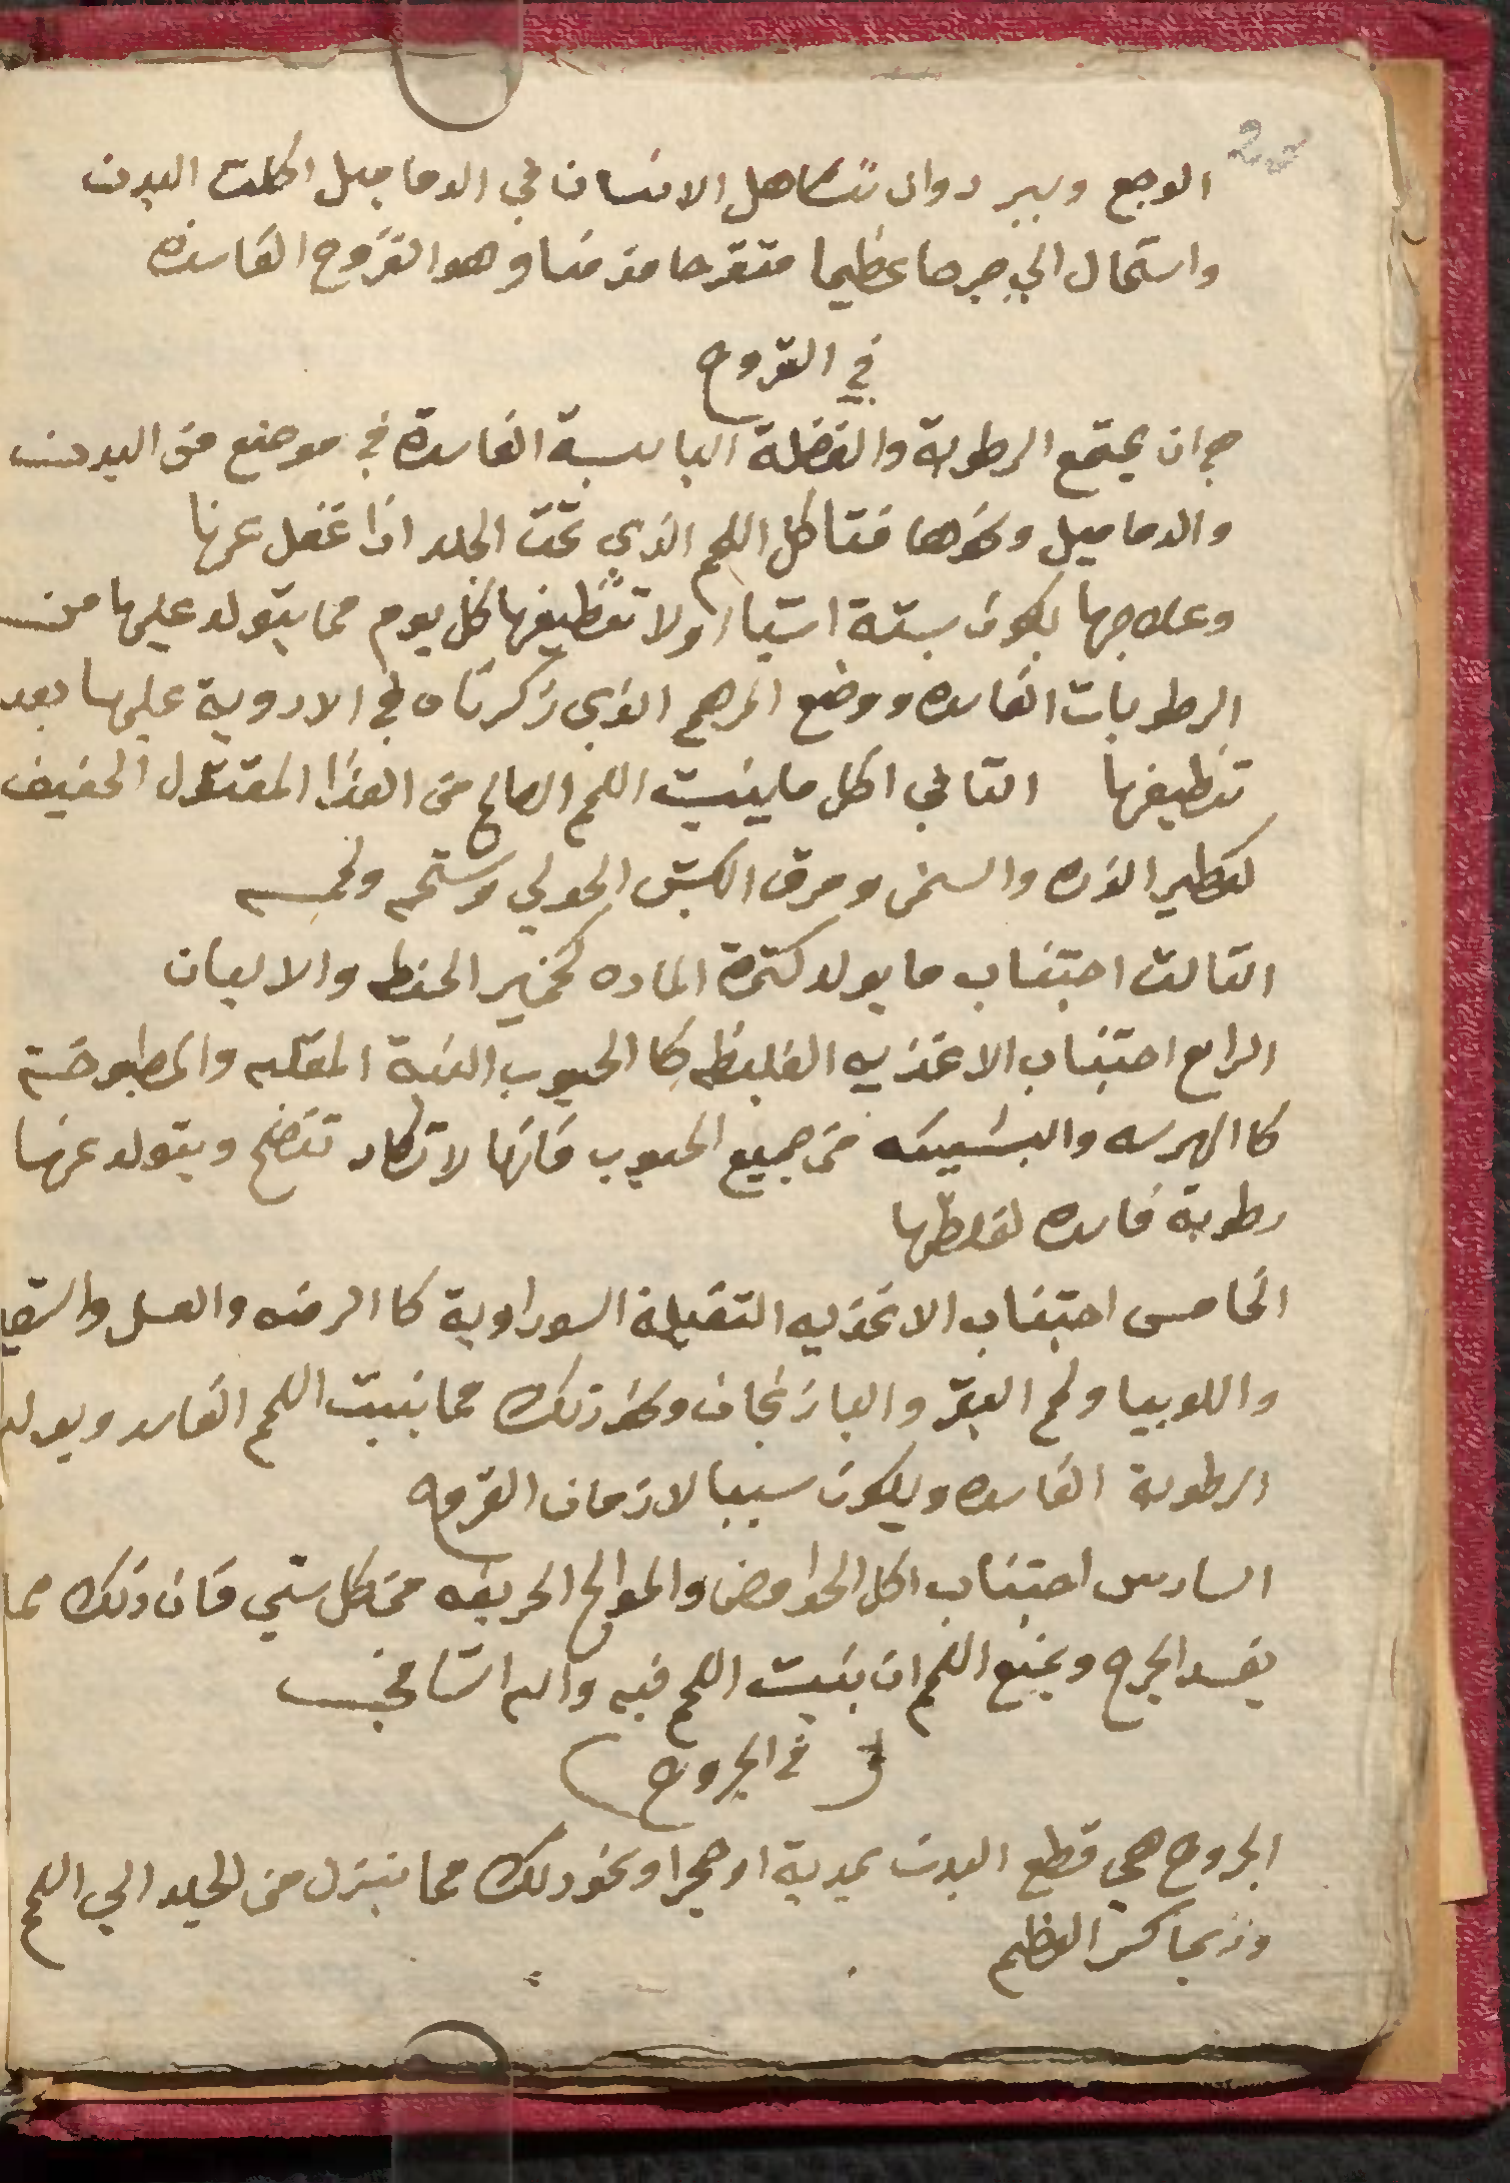 الوجع ويبر دوان تساهل الانسان في الدماميل اكلت البدن
واستحال الي جرحا عظيما متقرحا مزمنا وهو القروح الفاسده
في القروح
هي ان يجتمع الرطوبة والفضلة اليابسة الفاسدة في موضع من البدن
والدماميل ونحوها فتاكل اللحم الذي تحت الجلد اذا غفل عنها
وعلاجها يكون بستة اشيا اولا تنظيفها كل يوم مما يتولد عليها من
الرطوبات الفاسده ووضع المرهم الذي ذكرناه في الادوية عليها بعد
تنظيفها التاني اكل ما ينبت اللحم الصالح من الغذا المعتدل الخفيف
كفطير الذره والسمن ومرق الكبش الحولي وشحم ولحمه
التالت اجتناب ما يولد كترة الماده كخمير الحنطه والالبان
الرابع اجتناب الاغذيه الغليظه كا الحبوب النية المقليه والمطبوخة
كا الهرسه والبشيمه من جميع الحبوب فانها لا تكاد تنضج ويتولد عنها
رطوبة فاسده لغلظها
الخامس اجتناب الاغذيه التقيلة السوداوية كا الدخنه والعسل والتقيل
واللوبيا ولحم البقر والباذنجان ونحو ذلك مما ينبت اللحم الفاسد ويولد
الرطوبة الفاسده ويكون سببا لازمان القروح
السادس اجتناب اكل الحوامض والموالح الحريفه من كل شي فان ذلك مما
يفسد الجرح ويمنع اللحم ان ينبت اللحم فيه والله الشافي
في الجروح
الجروح هي قطع البدن بمدية او حجر او نحو ذلك مما ينزل من الجلد الي اللحم
وربما كسر العظم